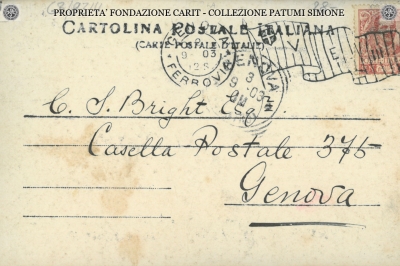 PROPRIETA' FONDAZIONE CARIT - COLLEZIONE PATUMI SIMONE
CARTOLINA POSTALE ITALIANA
(CARTE POSTALE D'ITALIE)
GENOVA
9 03
FERROVIA
C. S. Bright
Casella Postale 375
Genova